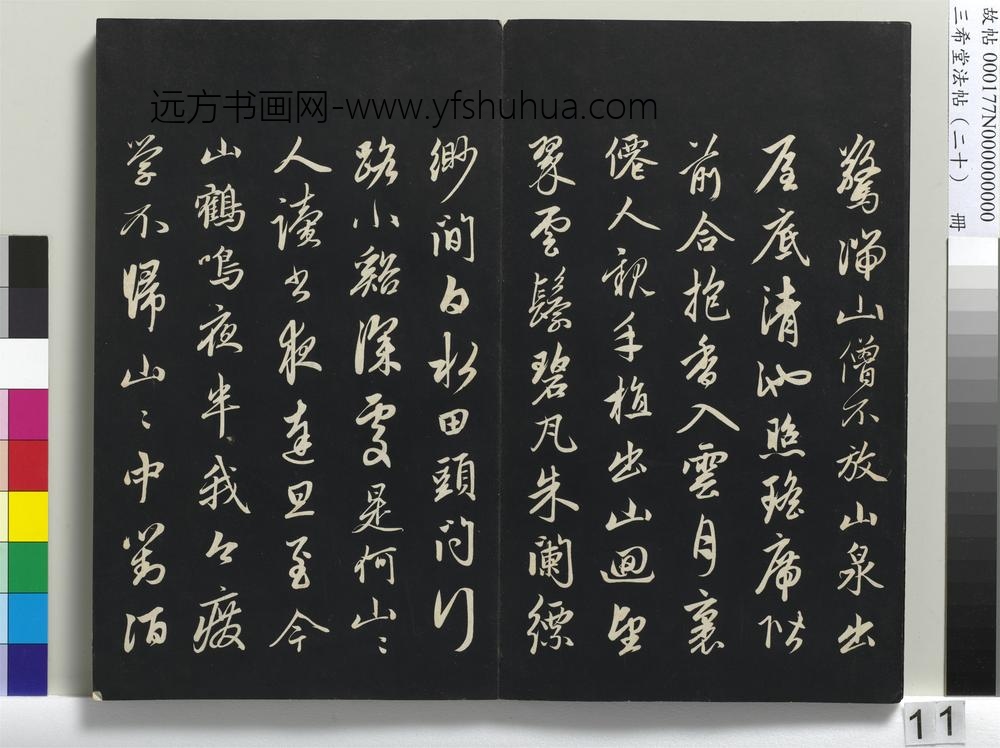 故帖 000177N000000000
三希堂法帖（二十） 冊
远方书画网-www.yfshuhua.com
驚湍山僧不放山泉出
屋底清池照瑤席階
前合抱香入雲月裏
僊人親手植出山迴望
翠雲鬟碧瓦朱闌縹
緲間白水田頭問行
路小谿深處是何山〻
人讀書夜達旦至今
山鶴鳴夜半我今廢
學不歸山〻中對酒
11